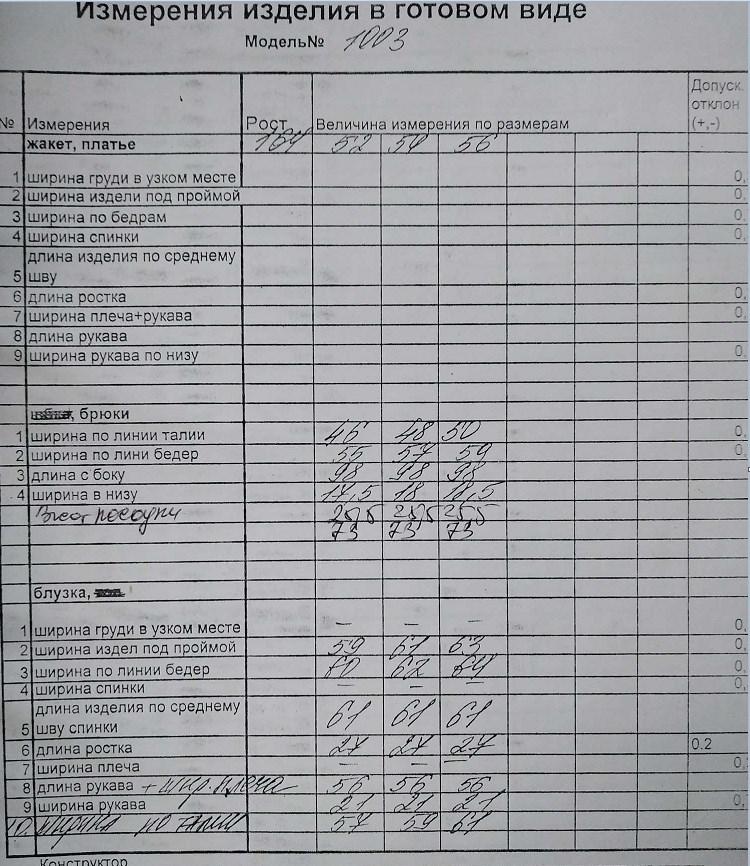 Измерения изделия в готовом виде
Модель№ 1003
№ Измерения Рост Величина измерения по размерам Допуск. отклон (+,-)
жакет, платье 164 52 54 56
1 ширина груди в узком месте 0,
2 ширина издели под проймой 0,
3 ширина по бедрам 0,
4 ширина спинки 0,
длина изделия по среднему
5 шву
6 длина ростка 0,
7 ширина плеча+рукава 0,
8 длина рукава
9 ширина рукава по низу 0,
, брюки
1 ширина по линии талии 46 48 50 0,
2 ширина по лини бедер 55 57 59 0,
3 длина с боку 98 98 98
4 ширина в низу 17,5 18 18,5
посадки 25,5 25,5 25,5
73 73 73
блузка,
1 ширина груди в узком месте – – – 0,
2 ширина издел под проймой 59 61 63 0,
3 ширина по линии бедер 60 62 64 0,
4 ширина спинки – – – 0,
длина изделия по среднему
5 шву спинки 61 61 61
6 длина ростка 27 27 27 0.2
7 ширина плеча – – – 0,
8 длина рукава + шир. плеча 56 56 56
9 ширина рукава 21 21 21 0,
10. ширина по талии 57 59 61
Конструктор